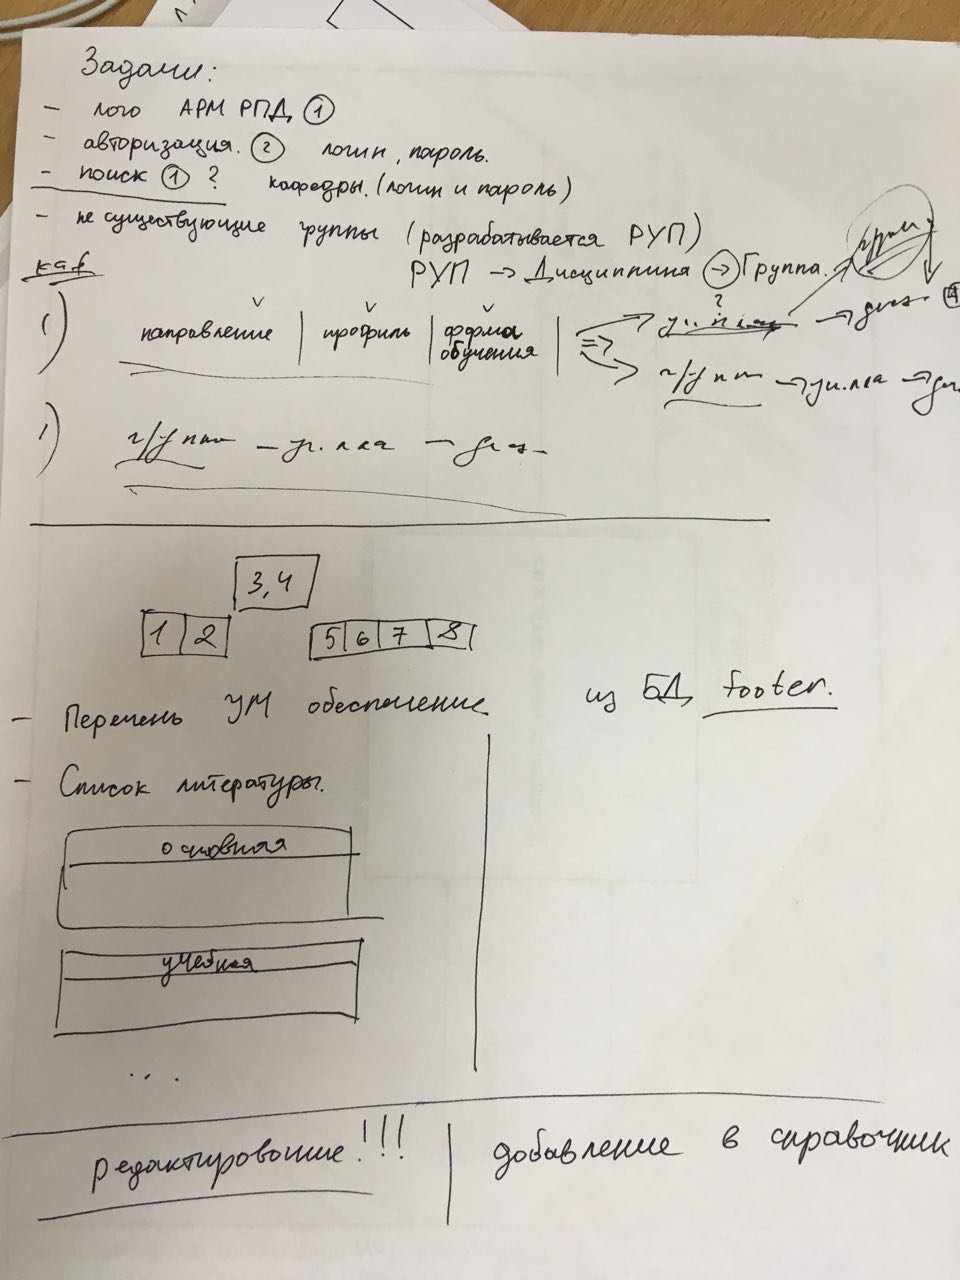 Задачи:
- лого АРМ РПД ①
- авторизация. ② логин, пароль.
- поиск ① ? кафедры. (логин и пароль)
- не существующие группы (разрабатывается РУП)
РУП → Дисциплина → Группа.
каф
1) направление | профиль | форма обучения | ⇒
?
1)
3,4
1 2
5 6 7 8
- Перечень УМ обеспечение
из БД footer.
- Список литературы.
основная
учебная
...
редактирование!!!
добавление в справочник